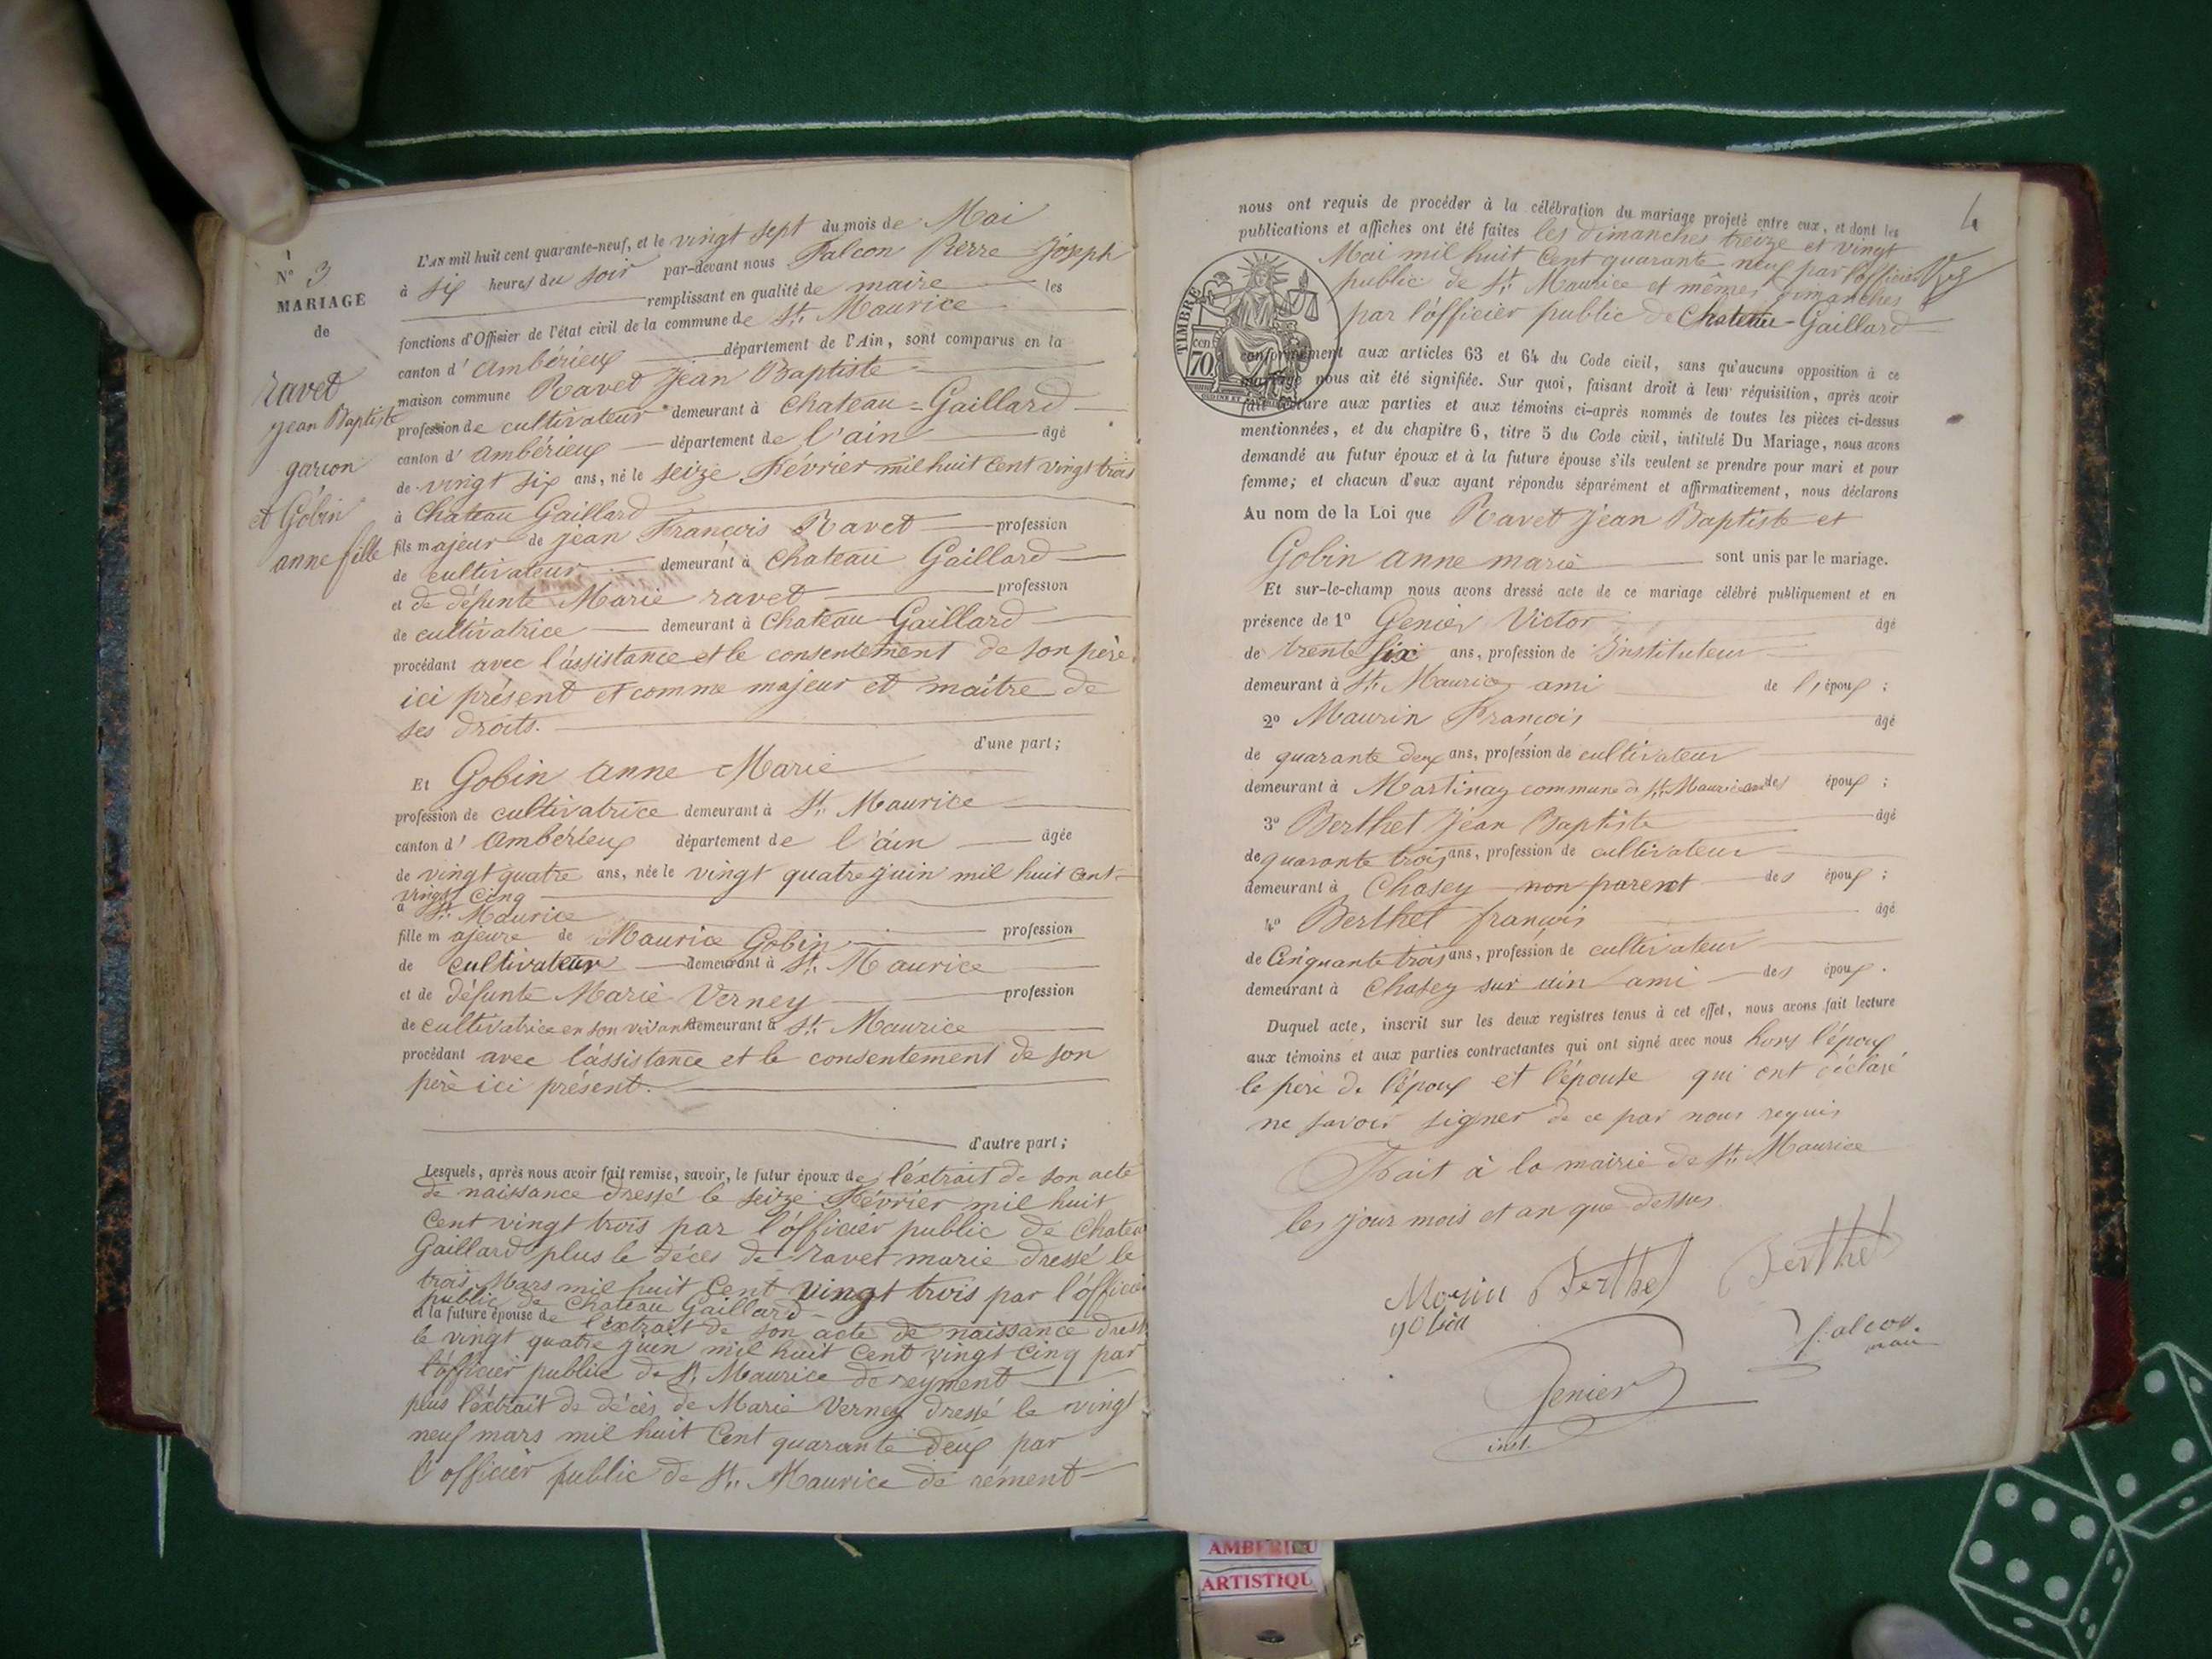 N° 3
MARIAGE
de
ravet
jean Baptiste
garçon
et Gobin
anne fille
L'AN mil huit cent quarante-neuf, et le vingt sept du mois de Mai
à six heures du soir par-devant nous Falcon Pierre Joseph
remplissant en qualité de maire les
fonctions d'Officier de l'état civil de la commune de St. Maurice
canton d' ambérieux département de l'Ain, sont comparus en la
maison commune Ravet jean Baptiste
profession de cultivateur demeurant à Chateau-Gaillard
canton d' ambérieux département de l'ain âgé
de vingt six ans, né le seize Février mil huit Cent vingt trois
à Chateau Gaillard
fils majeur de jean François Ravet profession
de cultivateur demeurant à Chateau Gaillard
et de défunte Marie ravet profession
de cultivatrice demeurant à Chateau Gaillard
procédant avec l'assistance et le consentement de son père
ici présent et comme majeur et maitre de
ses droits.
d'une part;
Et Gobin anne Marie
profession de cultivatrice demeurant à St. Maurice
canton d' ambérieux département de l'ain âgée
de vingt quatre ans, née le vingt quatre juin mil huit Cent
vingt Cinq
à St. Maurice
fille majeure de Maurice Gobin profession
de cultivateur demeurant à St. Maurice
et de défunte Marie Verney profession
de cultivatrice en son vivant demeurant à St. Maurice
procédant avec l'assistance et le consentement de son
père ici présent.
d'autre part;
Lesquels, après nous avoir fait remise, savoir, le futur époux de l'extrait de son acte
de naissance dressé le seize Février mil huit
Cent vingt trois par l'officier public de Chateau
Gaillard plus le décès de ravet marie dressé le
trois Mars mil huit Cent vingt trois par l'officier
public de Chateau Gaillard
et la future épouse de l'extrait de son acte de naissance dressé
le vingt quatre juin mil huit Cent vingt Cinq par
l'officier public de St. Maurice de reyment
plus l'extrait de décès de Marie Verney dressé le vingt
neuf mars mil huit Cent quarante deux par
l'officier public de St. Maurice de rément
4
nous ont requis de procéder à la célébration du mariage projeté entre eux, et dont les
publications et affiches ont été faites les dimanches treize et vingt
Mai mil huit Cent quarante-neuf par l'officier
public de St. Maurice et mêmes dimanches
par l'officier public de Chateau-Gaillard
TIMBRE
70 cen
conformément aux articles 63 et 64 du Code civil, sans qu'aucune opposition à ce
mariage nous ait été signifiée. Sur quoi, faisant droit à leur réquisition, après avoir
fait lecture aux parties et aux témoins ci-après nommés de toutes les pièces ci-dessus
mentionnées, et du chapitre 6, titre 5 du Code civil, intitulé Du Mariage, nous avons
demandé au futur époux et à la future épouse s'ils veulent se prendre pour mari et pour
femme; et chacun d'eux ayant répondu séparément et affirmativement, nous déclarons
Au nom de la Loi que Ravet jean Baptiste et
Gobin anne marie sont unis par le mariage.
Et sur-le-champ nous avons dressé acte de ce mariage célébré publiquement et en
présence de 1° Genier Victor âgé
de trente six ans, profession de Instituteur
demeurant à St. Maurice ami de l'époux;
2° Maurin François âgé
de quarante deux ans, profession de cultivateur
demeurant à Martinay commune de St. Maurice des époux;
3° Berthet jean Baptiste âgé
de quarante trois ans, profession de cultivateur
demeurant à Chasey non parent des époux;
4° Berthet françois âgé
de Cinquante trois ans, profession de cultivateur
demeurant à Chasey sur ain ami des époux.
Duquel acte, inscrit sur les deux registres tenus à cet effet, nous avons fait lecture
aux témoins et aux parties contractantes qui ont signé avec nous hors l'époux
le père de l'époux et l'épouse qui ont déclaré
ne savoir signer de ce par nous requis
Fait à la mairie de St. Maurice
les jour mois et an que dessus
Morin Berthet Berthet
gobin
falcon
maire
Genier
inst.
AMBERIEU
ARTISTIQU